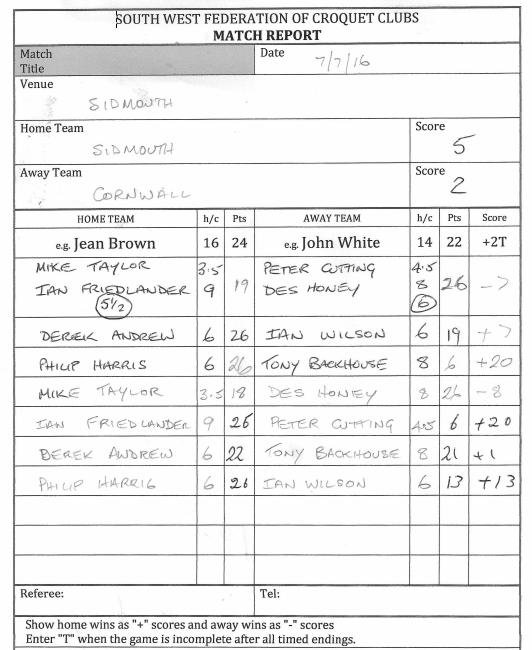 SOUTH WEST FEDERATION OF CROQUET CLUBS
MATCH REPORT
Match Title
Date 7/7/16
Venue
SIDMOUTH
Home Team Score
SIDMOUTH 5
Away Team Score
CORNWALL 2
HOME TEAM h/c Pts AWAY TEAM h/c Pts Score
e.g. Jean Brown 16 24 e.g. John White 14 22 +2T
MIKE TAYLOR 3.5 PETER CUTTING 4.5
IAN FRIEDLANDER 9 19 DES HONEY 8 26 -7
5 1/2 6
DEREK ANDREW 6 26 IAN WILSON 6 19 +7
PHILIP HARRIS 6 26 TONY BACKHOUSE 8 6 +20
MIKE TAYLOR 3.5 18 DES HONEY 8 26 -8
IAN FRIEDLANDER 9 26 PETER CUTTING 4.5 6 +20
DEREK ANDREW 6 22 TONY BACKHOUSE 8 21 +1
PHILIP HARRIS 6 26 IAN WILSON 6 13 +13
Referee: Tel:
Show home wins as "+" scores and away wins as "-" scores
Enter "T" when the game is incomplete after all timed endings.